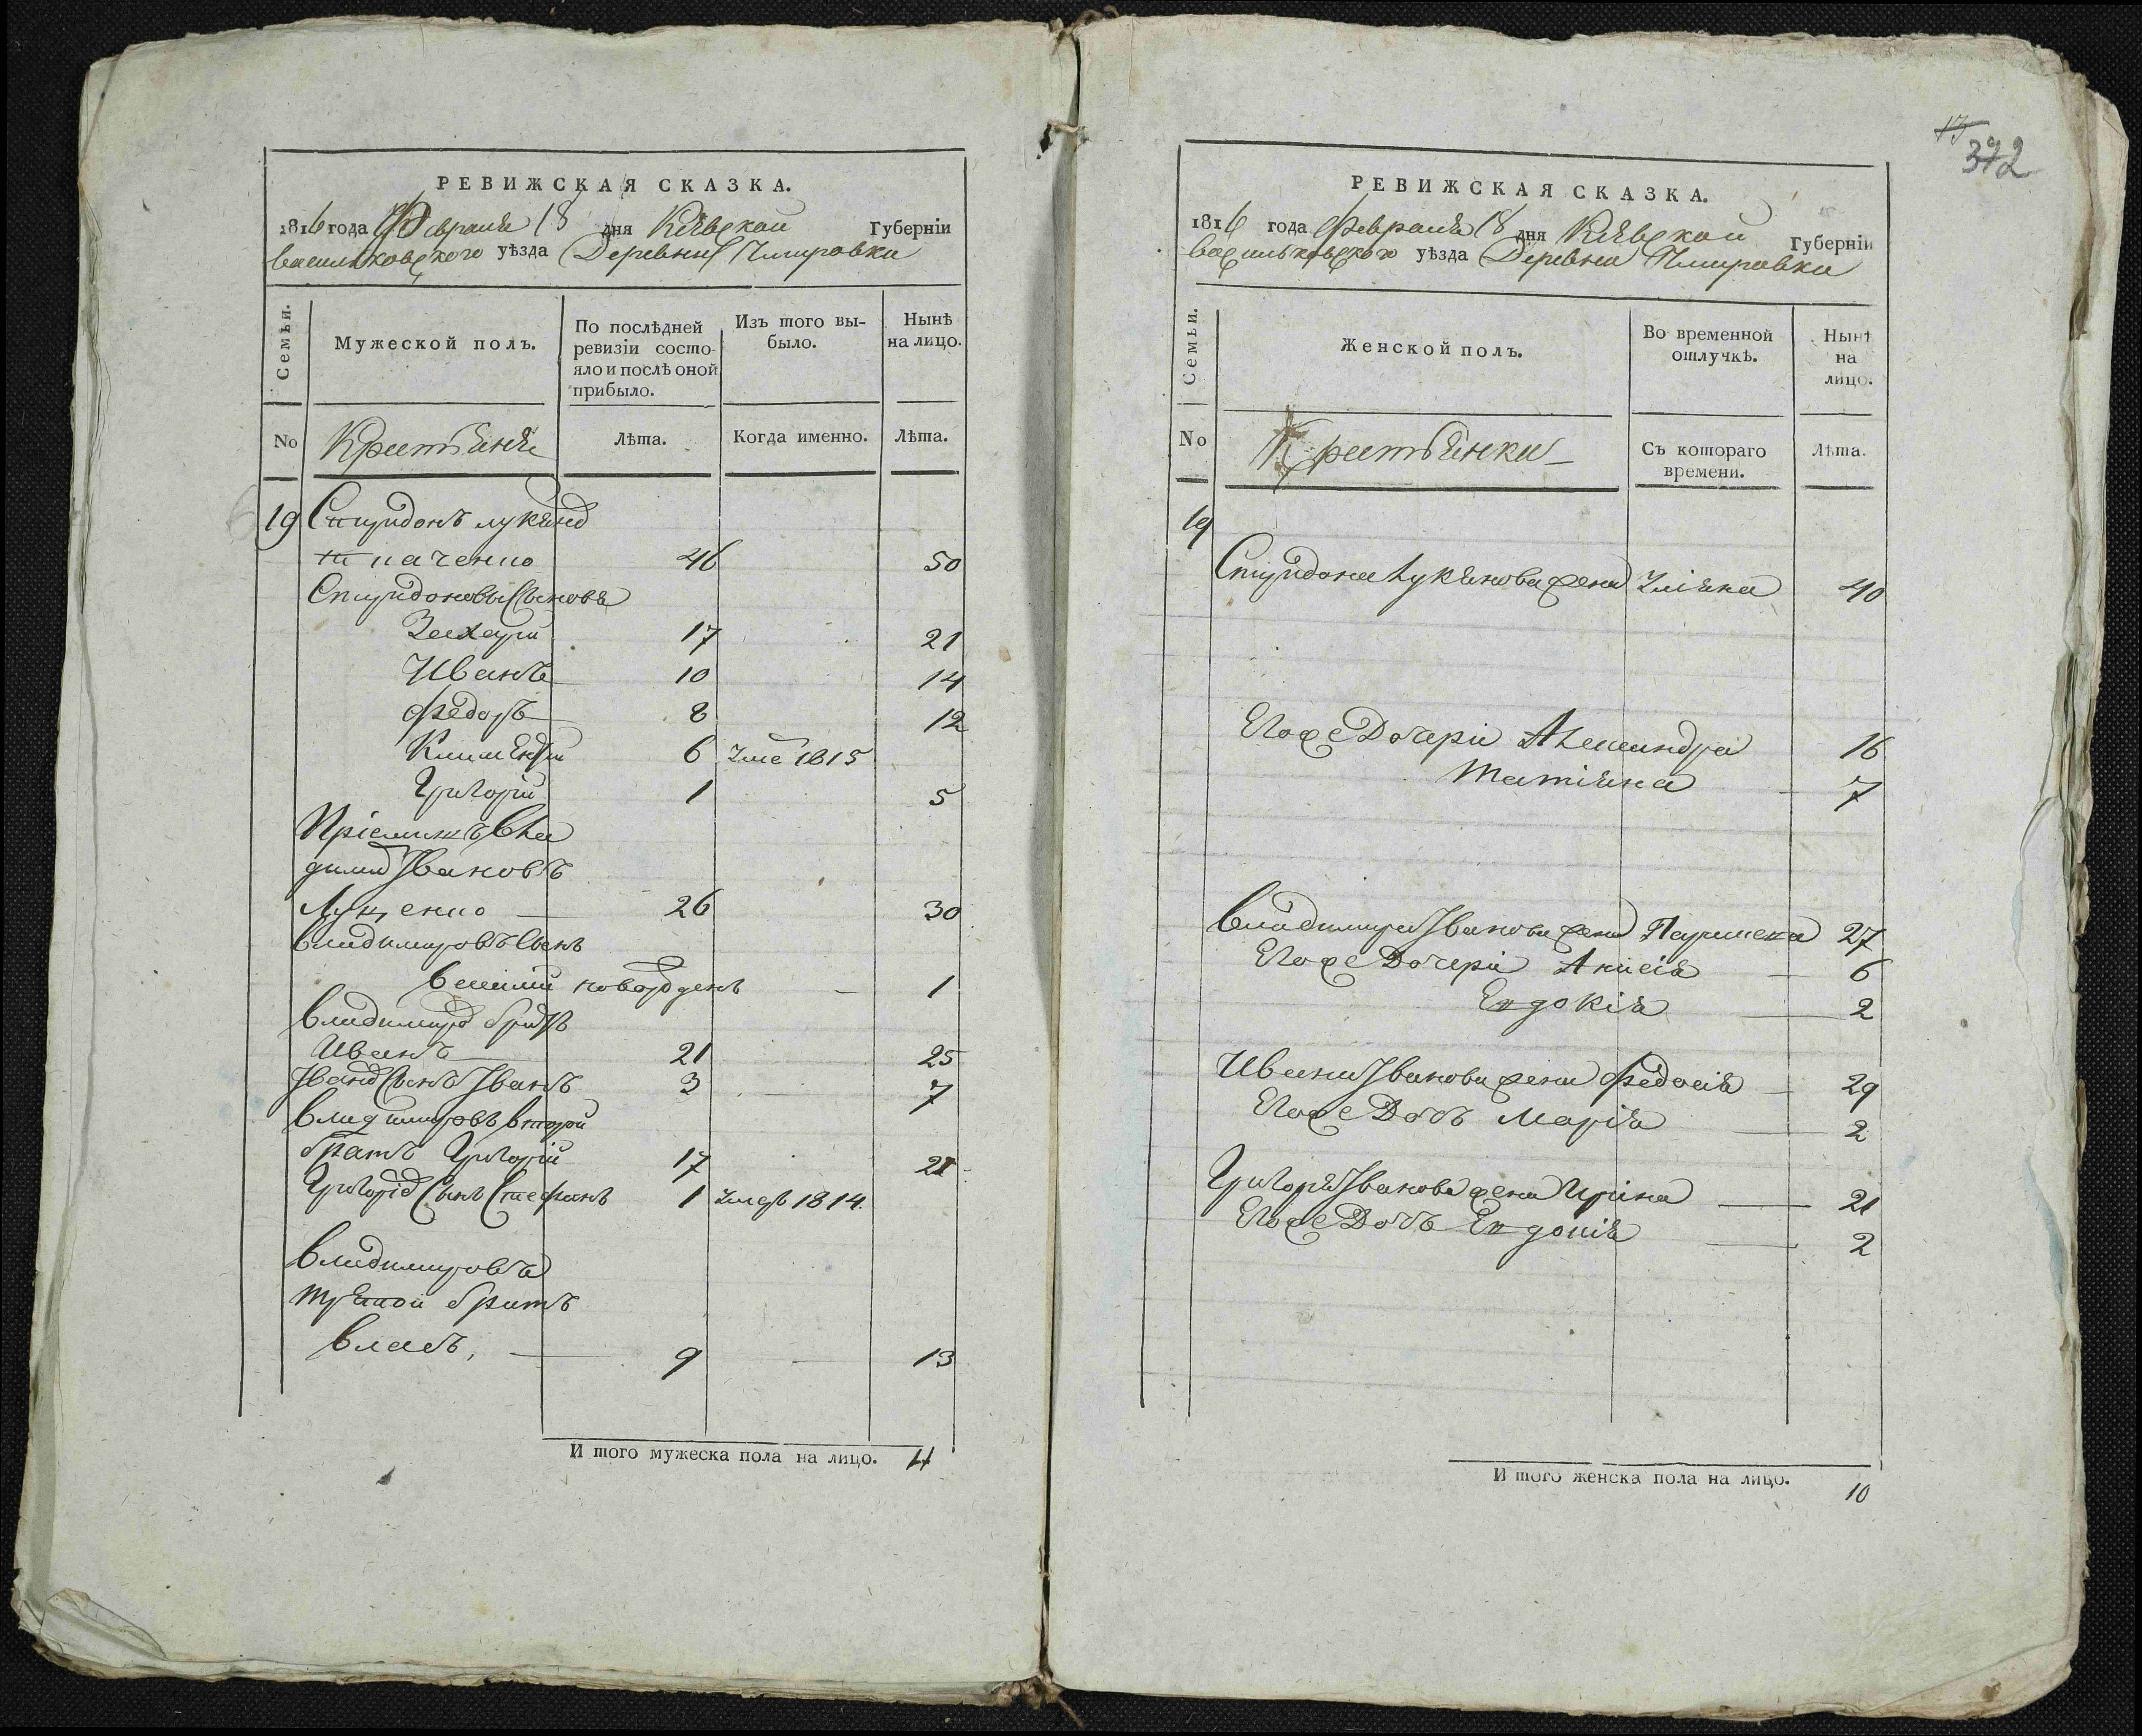 РЕВИЖСКАЯ СКАЗКА.
1816 года Февраля 18 дня Кіевской Губерніи
васильковского уѣзда Деревни Чмировки
Семьи.
Мужеской полъ.
По послѣдней ревизіи состо-
яло и послѣ оной прибыло.
Изъ того вы-
было.
Нынѣ
на лицо.
No
Крестьяня
Лѣта.
Когда именно.
Лѣта.
19 Спиридонъ лукянов
ткаченко 46 50
Спиридоновы Сыновя
Захарій 17 21
Иванъ 10 14
Федоръ 8 12
Климентій 6 1815
Григорій 1 5
Пріемышъ Вла
димир Ивановъ
Луценко 26 30
владимировъ Сынъ
василій новорожденъ 1
владимиров братъ
Иванъ 21 25
Иванов Сынъ Иванъ 3 7
владимировъ второй
братъ Григорій 17 21
Григорія Сынъ Стефанъ 1 умеръ 1814.
владимировъ
третой братъ
власъ, 9 13
И того мужеска пола на лицо. 11
372
РЕВИЖСКАЯ СКАЗКА.
1816 года Февраля 18 дня Кіевской Губерніи
васильковского уѣзда Деревни Чмировки
Семьи.
Женской полъ.
Во временной
отлучкѣ.
Нынѣ
на
лицо.
No
Крестьянки
Съ котораго
времени.
Лѣта.
19
Спиридона Лукянова жена Уліяна 40
Егоже Дочери Александра 16
Матіяна 7
Владимира Иванова жена Параска 27
Егоже Дочери Анисія 6
Евдокія 2
Ивана Иванова жена Федосія 29
Егоже Дочь Марія 2
Григорія Иванова жена Ирина 21
Егоже Дочь Евдокія 2
И того женска пола на лицо. 10